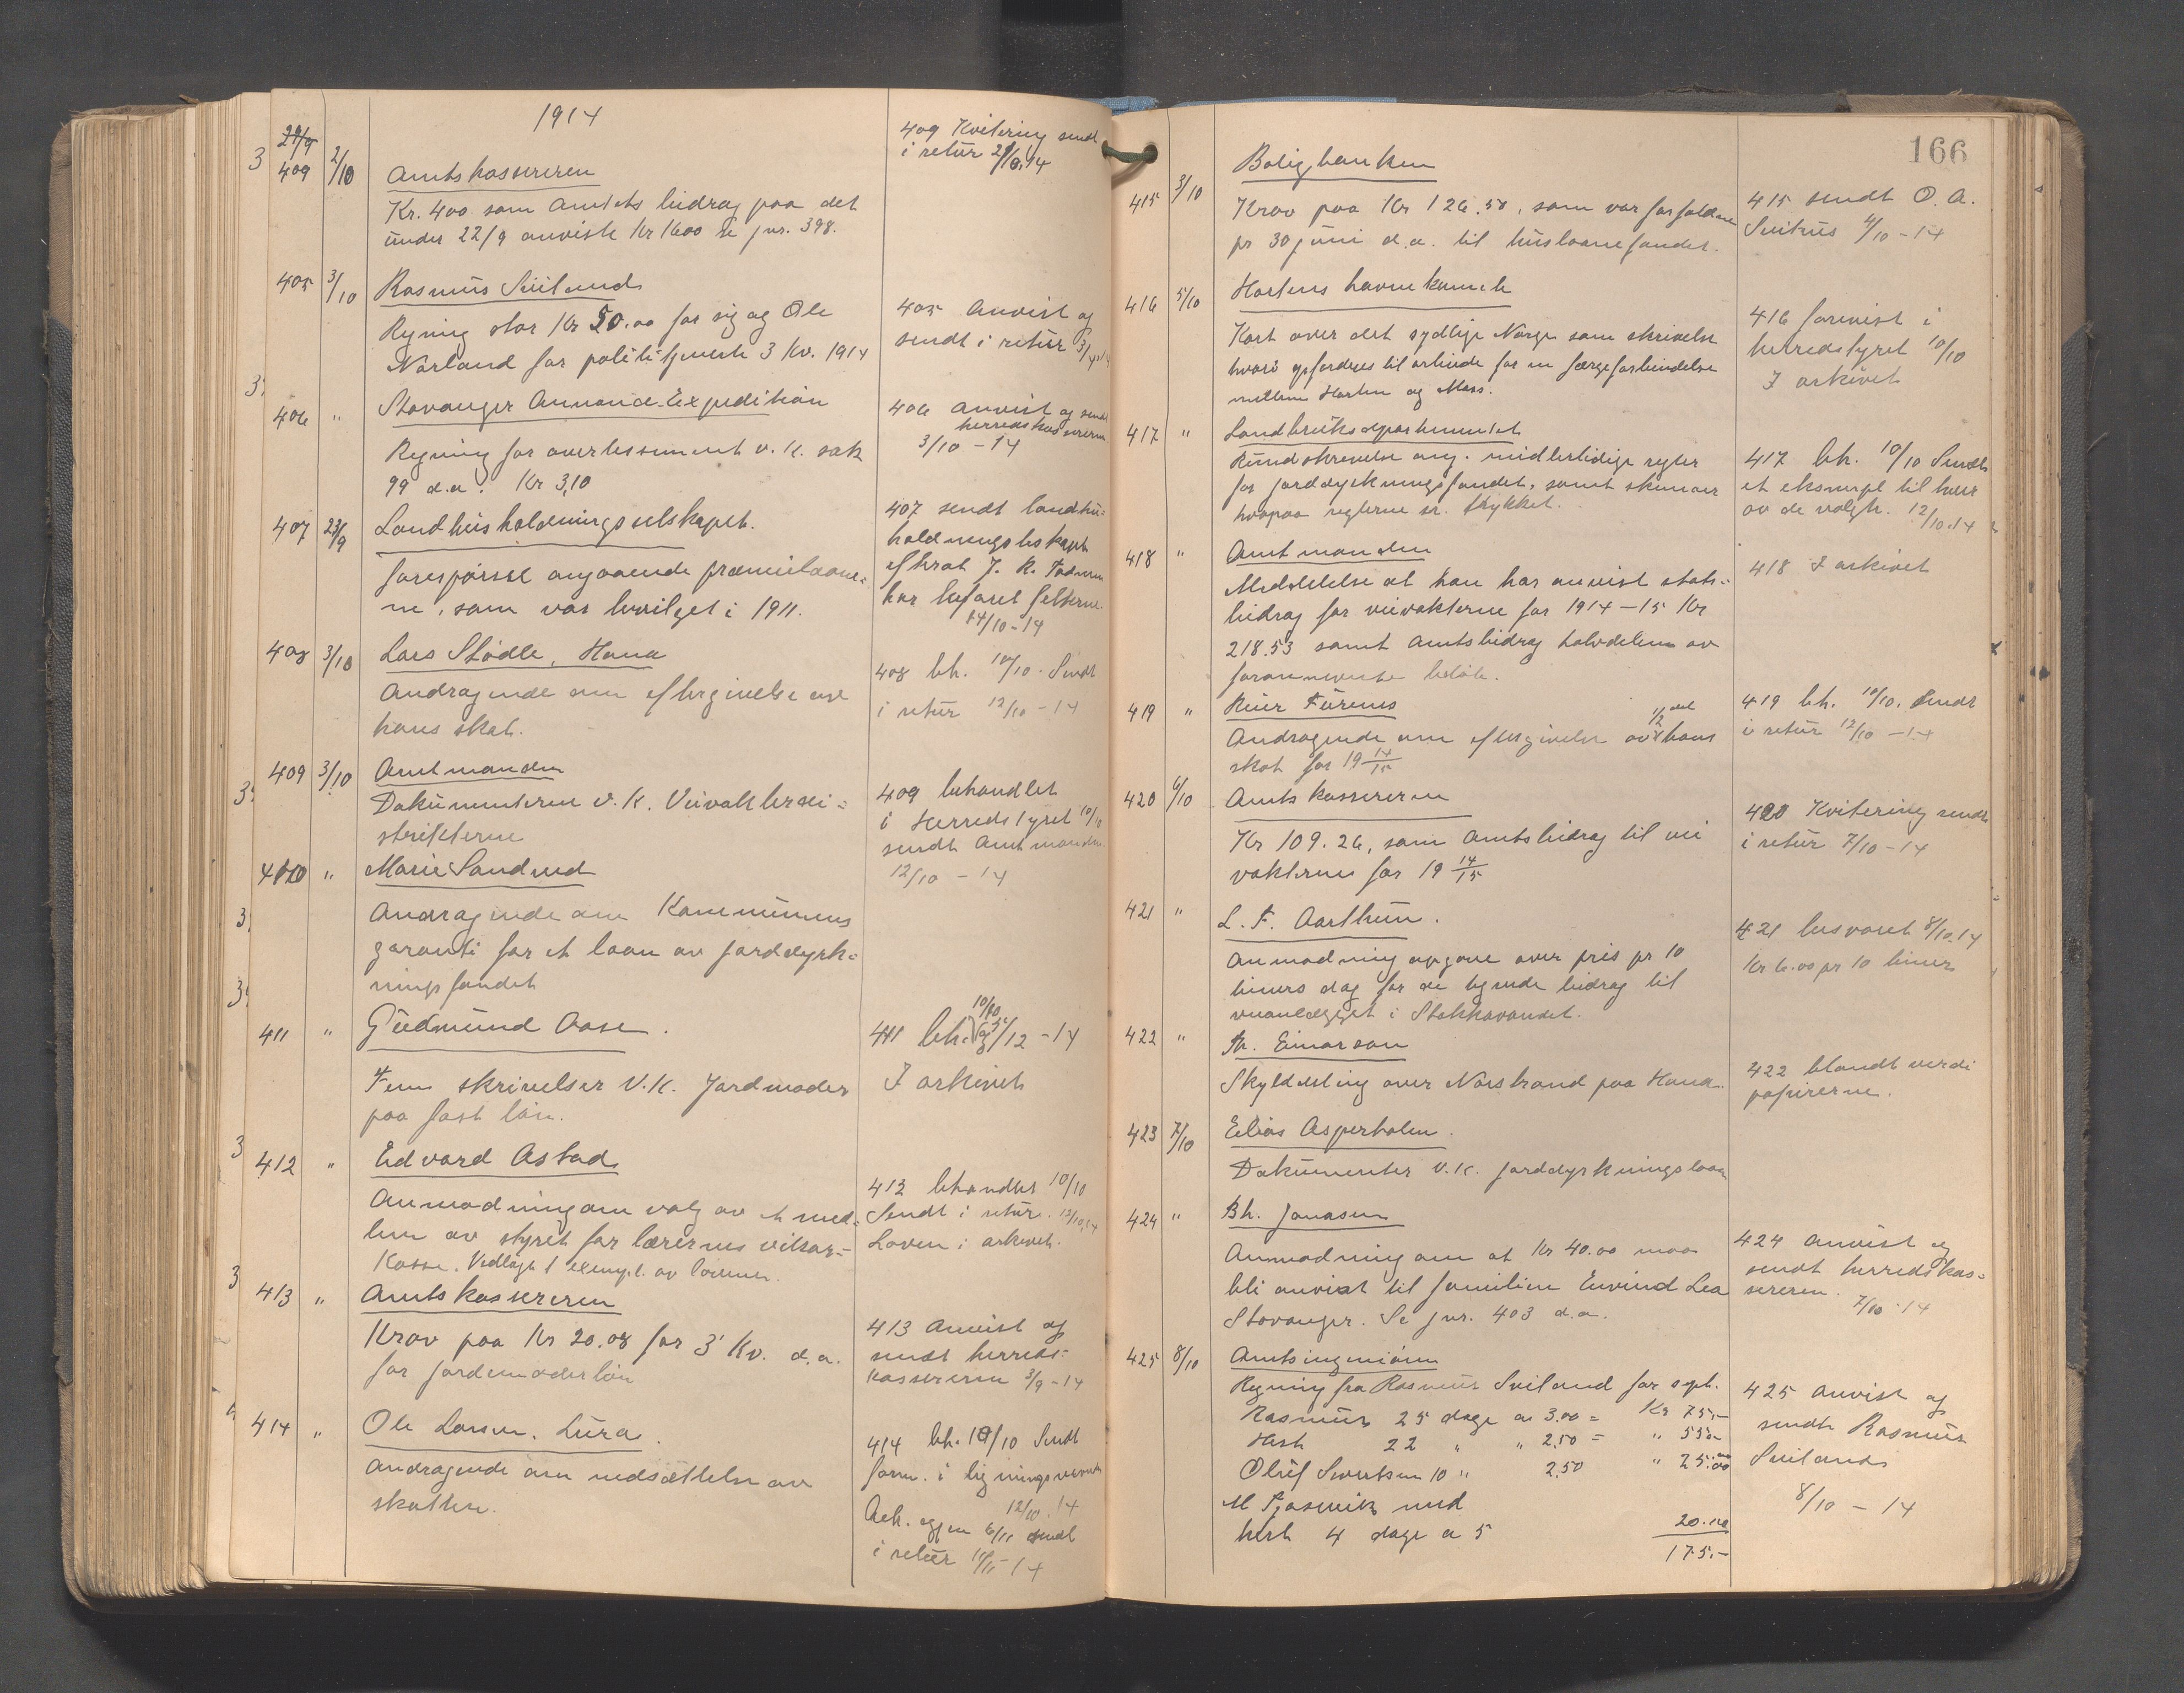 1914
29/9
409 2/10 Amtskassereren
Kr. 400 som Amtets bidrag paa det
under 22/9 anviste Kr 1600 se jnr. 398.
409 Kvitering sendt
i retur
405 3/10 Rasmus Sviland
Regning stor Kr 50.00 for sig og Ole
Norland for polititjeneste 3 Kv. 1914
405 Anvist og
sendt i retur
406 " Stavanger Annonce-Expedition
Regning for avertissement v. k. sak
99 d.a. Kr 3,10
406 anvist og sendt
herredskassereren
3/10 - 14
407 23/9 Landhusholdningsselskapet.
forespørsel angaaende præmielaane-
ne, som var bevilget i 1911.
407 sendt landhu-
holdningsselskapet
efterat J. K.
har befaret felterne.
14/10-14
408 3/10 Lars Stødle, Hana
Andragende om eftergivelse av
hans skat.
408 bh. 10/10. Sendt
i retur 12/10 - 14
409 3/10 Amtmanden
Dokumenterne v. k. Veivokterdi-
strikterne
409 behandlet
i Herredstyret 10/10
sendt Amtmanden
12/10 - 14
410 " Marie Sandved
Andragende om Kommunens
garanti for et laan av jorddyrk-
ningsfondet
411 " Gudmund Aase.
Fem skrivelser v.k. Jordmoder
paa fast løn.
411 bh. 10/10 /12 - 14
I arkivet
412 " Edvard Astad
Anmodning om valg av et med-
lem av styret for lærernes vikar-
kasse. Vedlagt 1 exempl. av lovene.
412 behandlet 10/10
Sendt i retur. 12/10.14
Loven i arkivet.
413 " Amtskassereren
Krav paa Kr 20.08 for 3' Kv. d.a.
for jordemoderløn
413 Anvist og
sendt herreds-
kassereren 3/9-14
414 " Ole Larsen, Lura.
Andragende om nedsættelse av
skatten.
414 bh. 10/10 Sendt
form. i ligningsvæsenet
12/10 14
6/11 sendt
i retur 11/11 - 14
166
Boligbanken
415 3/10 Krav paa Kr 126.50, som var forfalden
pr 30 juni d.a. til huslaanefondet.
415 sendt O. A.
/10 - 14
Hortens havnekomite
416 5/10 Kart over det sydlige Norge som skrivelse
hvori opfordres til arbeide for en færgeforbindelse
mellem Horten og Moss.
416 forevist i
herredstyret 10/10
I arkivet
417 " Landbruksdepartementet
Rundskrivelse ang. midlertidige regler
for jorddyrkningsfondet, samt skemaer
hvorpaa reglerne er trykket.
417 bh. 10/10 Sendt
et eksempl til hver
av de valgte. 12/10.14
418 " Amtmanden
Meddelelse at han har anvist stats-
bidrag for veivokterne for 1914-15 Kr
218.53 samt Amtsbidrag halvdelen av
forannevnte beløb.
418 I arkivet
419 " Reier Furenes
Andragende om eftergivelse av 1/2 del hans
skat for 19 14/15
419 bh. 10/10. Sendt
i retur 12/10 - 14
420 6/10 Amtskassereren
Kr 109.26, som Amtsbidrag til vei
vokternes for 19 14/15
420 Kvitering sendt
i retur 7/10 - 14
421 " L. F. Aarthun.
Anmodning opgave over pris pr 10
timers dag for de tegnede bidrag til
veianlægget i Stokkavandet.
421 besvaret 8/10.14
Kr 6.00 pr 10 timer
422 " Th. Einarson
Skylddeling over Norstrand paa Hana.
422 blandt verdi
papirerne.
423 7/10 Elias Asperholm.
Dokumenter v.k. jorddyrkningslaan
424 " Bh. Jonasen
Anmodning om at Kr 40.00 maa
bli anvist til familien Eivind Lea
Stavanger. Se jnr. 403 d.a.
424 anvist og
sendt herredskas-
sereren.
7/10 - 14
425 8/10 Amtsingeniøren
Regning fra Rasmus Sviland for sept.
Rasmus 25 dage a 3.00 = Kr 75.-
Hest 22 " " 2,50 = " 55.-
Oluf Sivertsen 10 " 2,50 " 25.00
M med
hest 4 dage a 5 20.00
175.-
425 Anvist og
sendt Rasmus
Sviland
8/10 - 14